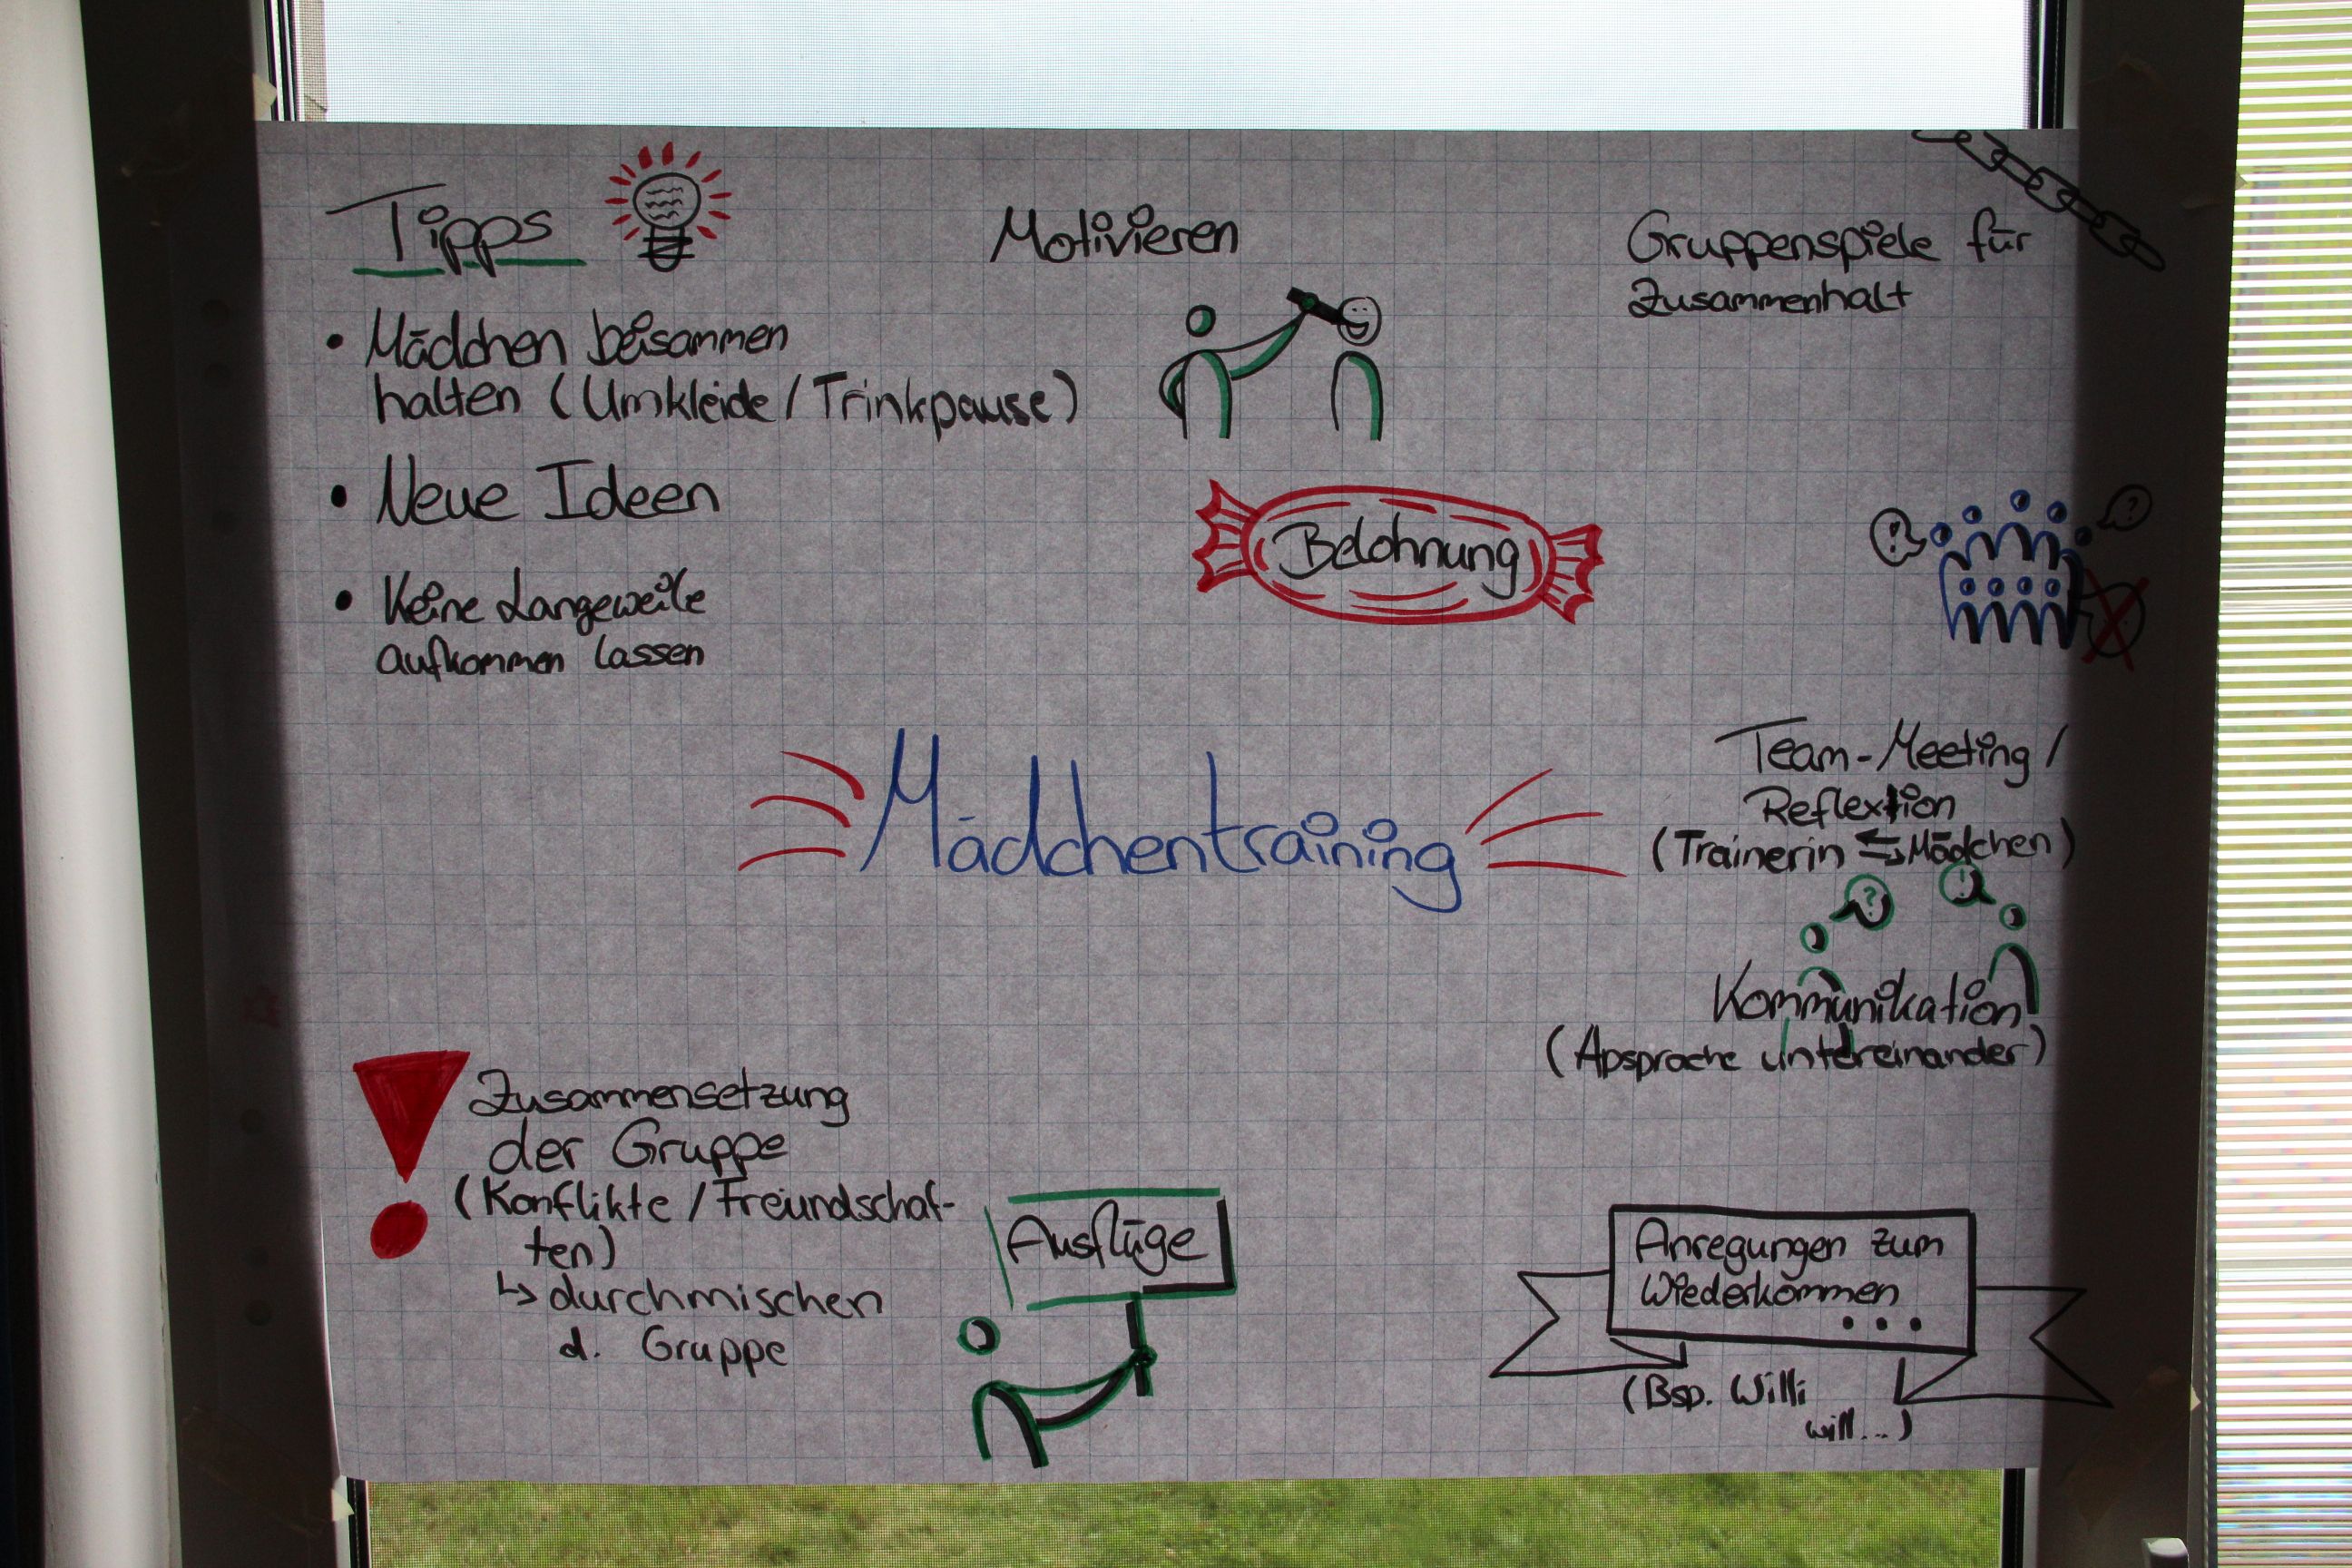 Tipps
• Mädchen beisammen
halten (Umkleide / Trinkpause)
• Neue Ideen
• Keine Langeweile
aufkommen lassen
Motivieren
Belohnung
Gruppenspiele für
Zusammenhalt
!
?
Mädchentraining
Team-Meeting /
Reflextion
(Trainerin ⇆ Mädchen)
?
!
Kommunikation
(Absprache untereinander)
Zusammensetzung
der Gruppe
(Konflikte / Freundschaf-
ten)
↳ durchmischen
d. Gruppe
Ausflüge
Anregungen zum
Wiederkommen
...
(Bsp. Willi
will...)